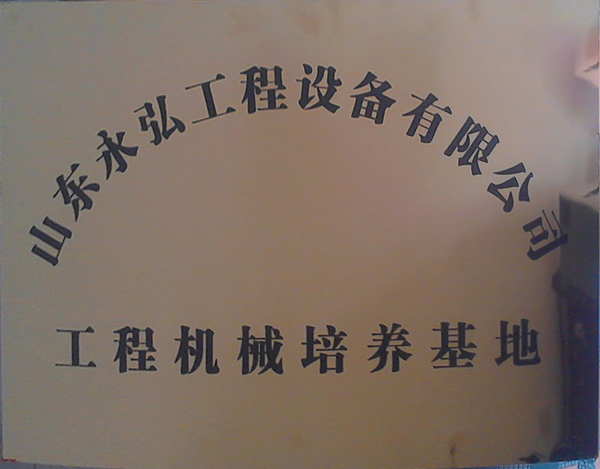 山东永弘工程设备有限公司
工程机械培养基地